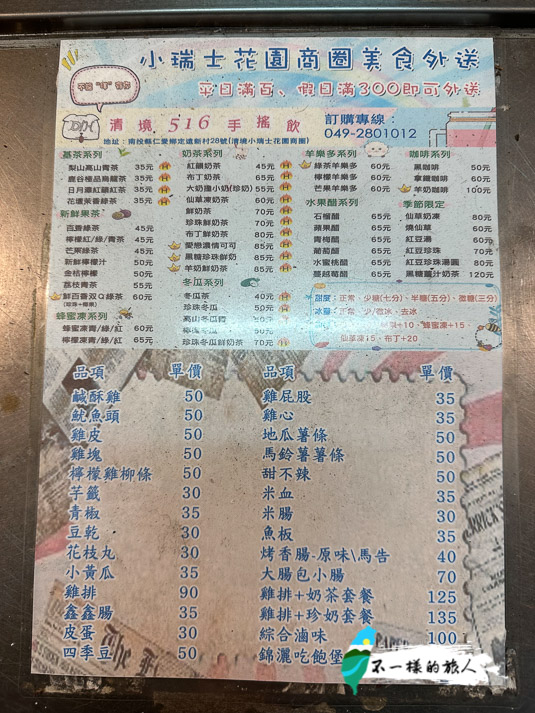 小瑞士花園商圈美食外送
平日滿百、假日滿300即可外送
清境516手搖飲
訂購專線：
049-2801012
地址：南投縣仁愛鄉定遠新村28號(清境小瑞士花園商圈)
基茶系列
梨山高山青茶 35元
鹿谷極品烏龍茶 35元
日月潭紅韻紅茶 35元
花壇茉香綠茶 35元
新鮮果茶
百香綠茶 45元
檸檬紅/綠/青茶 45元
芒果綠茶 45元
新鮮檸檬汁 50元
金桔檸檬 50元
荔枝青茶 55元
鮮百香双Q綠茶 60元
(珍珠+椰果)
蜂蜜凍系列
蜂蜜凍青/綠/紅 60元
檸檬凍青/綠/紅 65元
奶茶系列
紅韻奶茶 45元
布丁奶茶 65元
大奶攤小奶(珍奶) 55元
仙草凍奶茶 60元
鮮奶茶 70元
珍珠鮮奶茶 70元
布丁鮮奶茶 80元
愛戀濃情可可 85元
黑糖珍珠鮮奶 85元
羊奶鮮奶茶 85元
冬瓜系列
冬瓜茶 40元
珍珠冬瓜 50元
高山冬瓜露 50元
檸檬冬瓜
珍珠冬瓜鮮奶茶 70元
羊樂多系列
綠茶羊樂多 60元
檸檬羊樂多 60元
芒果羊樂多 60元
水果醋系列
石榴醋 65元
蘋果醋 65元
青梅醋 65元
葡萄醋 65元
水蜜桃醋 60元
蔓越莓醋 60元
咖啡系列
黑咖啡 50元
拿鐵咖啡 60元
羊奶咖啡 100元
季節限定
仙草奶凍 80元
燒仙草 60元
紅豆湯 60元
紅豆珍珠 70元
紅豆珍珠湯圓 80元
黑糖薑汁奶茶 120元
甜度：正常、少糖(七分)、半糖(五分)、微糖(三分)
冰量：正常、少/微冰、去冰
+10、蜂蜜凍+15、
仙草凍15、布丁+20
品項 單價 品項 單價
鹹酥雞 50 雞屁股 35
魷魚頭 50 雞心 35
雞皮 50 地瓜薯條 50
雞塊 50 馬鈴薯薯條 50
檸檬雞柳條 50 甜不辣 50
芋籤 30 米血 35
青椒 35 米腸 30
豆乾 30 魚板 35
花枝丸 30 烤香腸-原味\馬告 40
小黃瓜 35 大腸包小腸 70
雞排 90 雞排+奶茶套餐 125
鑫鑫腸 35 雞排+珍奶套餐 135
皮蛋 30 綜合滷味 100
四季豆 50 錦灑吃飽堡
不一樣的旅人